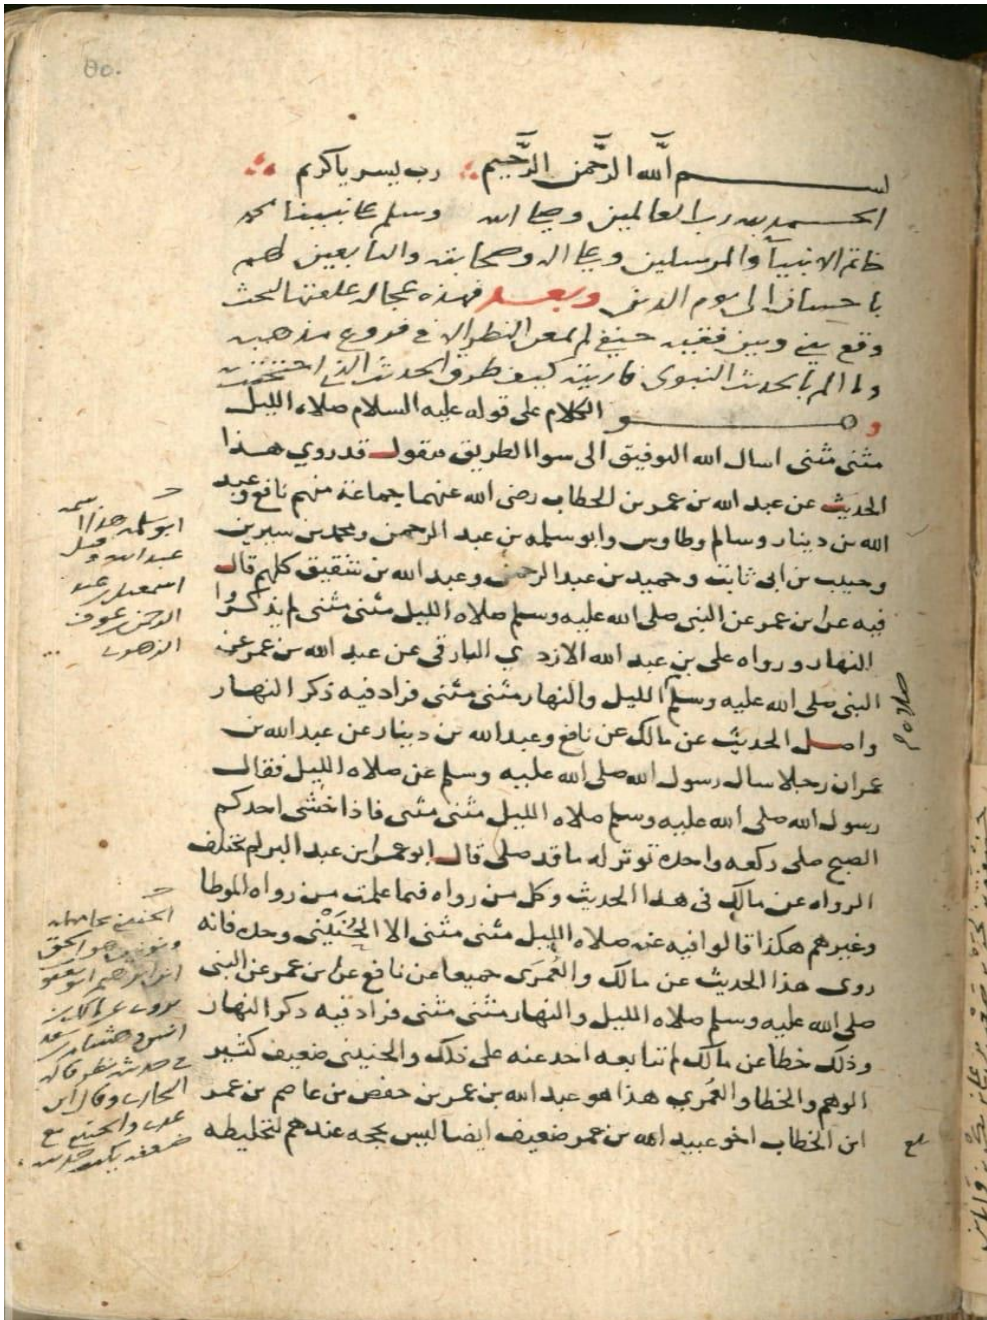 بسم الله الرحمن الرحيم رب يسر يا كريم
الحمد لله رب العالمين وصلى الله وسلم على نبينا محمد
خاتم الانبياء والمرسلين وعلى اله وصحابته والتابعين لهم
باحسان الى يوم الدين وبعد فهذه عجاله علقتها لبحث
وقع بيني وبين فقيه حنفي لم يمعن النظر الا في فروع مذهبه
ولا الم بالحديث النبوي فاريته كيف طرق الحديث الذي
وهو الكلام على قوله عليه السلام صلاه الليل
مثنى مثنى اسال الله التوفيق الى سوا الطريق فنقول قد روي هذا
الحديث عن عبد الله بن عمر بن الخطاب رضى الله عنهما جماعة منهم نافع وعبد
الله بن دينار وسالم وطاوس وابو سلمه بن عبد الرحمن ومحمد بن سيرين
وحبيب بن ابى ثابت وحميد بن عبد الرحمن وعبد الله بن شقيق كلهم قال
فيه عن ابن عمر عن النبى صلى الله عليه وسلم صلاه الليل مثنى مثنى لم يذكروا
النهار ورواه على بن عبد الله الازدي البارقى عن عبد الله بن عمر عن
النبى صلى الله عليه وسلم الليل والنهار مثنى مثنى فزاد فيه ذكر النهار
صلاة
واصل الحديث عن مالك عن نافع وعبد الله بن دينار عن عبد الله بن
عمر ان رجلا سال رسول الله صلى الله عليه وسلم عن صلاه الليل فقال
رسول الله صلى الله عليه وسلم صلاه الليل مثنى مثنى فاذا خشى احدكم
الصبح صلى ركعه واحدة توتر له ما قد صلى قال ابو عمر ابن عبد البر لم تختلف
الرواه عن مالك فى هذا الحديث وكل من رواه فيما علمت من رواه الموطا
وغيرهم هكذا قالوا فيه عنه صلاه الليل مثنى مثنى الا الحُنَيْنى وحده فانه
روى هذا الحديث عن مالك والعُمَرى جميعا عن نافع عن ابن عمر عن النبى
صلى الله عليه وسلم صلاه الليل والنهار مثنى مثنى فزاد فيه ذكر النهار
وذلك خطا عن مالك لم يتابعه احد عنه على ذلك والحنينى ضعيف كثير
الوهم والخطا والعُمَري هذا هو عبد الله بن عمر بن حفص بن عاصم بن عمر
ابن الخطاب اخو عبيد الله بن عمر ضعيف ايضا ليس بحجه عندهم لتخليطه
ابو سلمه هذا اسمه
عبد الله وقيل
اسمعيل بن عبد
الرحمن بن عوف
الزهري
الحنيني بحا مهمله
ونونين هو اسحق
ابن ابراهيم ابو يعقوب
يروي عن مالك بن
انس وهشام بن سعد
في حديثه نظر قاله
البخاري وقال ابن
عدي والحنيني مع
ضعفه يكتب حديثه